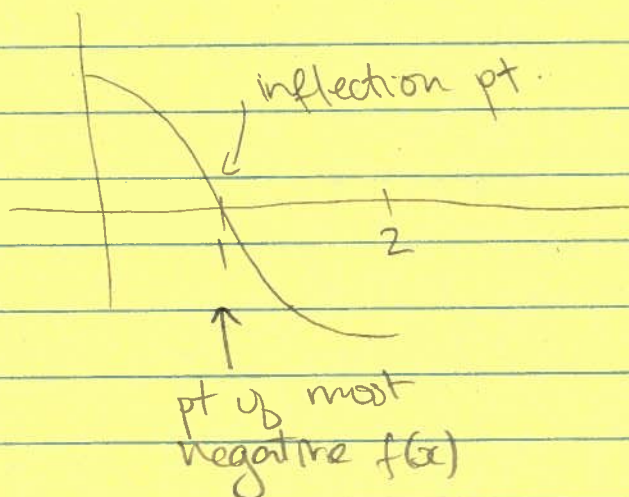 inflection pt.
1
2
pt of most
negative f(x)